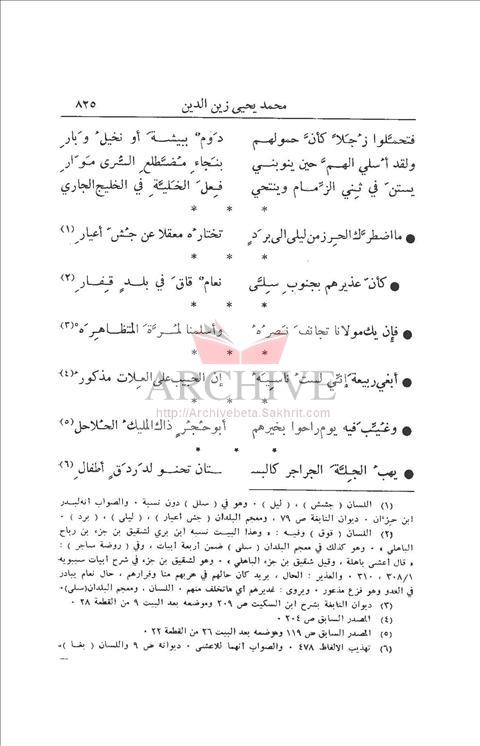 محمد يحيى زين الدين ٨٢٥
فتحمَّلوا زُجَلاً كأنَّ حمولهم دَوْمٌ ببيشةَ أو نخيلُ وَبارِ
ولقد أُسلي الهمَّ حين ينوبني بنَجاءِ مضطلعِ السُّرى مَوّارِ
يستنُّ في ثِني الزِّمام وينتحي فِعلَ الخَليَّةِ في الخليج الجاري
* * *
● ما اضطرَّك الحِرز من ليلى الى بَرَدٍ تختارُه معقلا عن جُشِّ أعيارِ (١)
* * *
● كأنَّ عذيرهم بجنوب سِلَّى نعامٌ قاقَ في بلدٍ قِفارِ (٢)
* * *
● فإن يك مولانا تجانفَ نَصرُهُ وأسلمنا لمُرَّةَ المتظاهِرَه (٣)
* * *
ARCHIVE
● أبغي ربيعةَ إنّي لستُ ناسِيَهُ إن الحبيب على العِلات مذكورُ (٤)
http://Archivebeta.Sakhrit.com
* * *
● وغُيِّبَ فيه يوم راحوا بخيرهم أبو حُجُرٍ ذاك المليكُ الحُلاحل (٥)
* * *
● يهبُ الجِلَّةَ الجراجر كالبســ ـستان تحنو لدَردَقٍ أطفال (٦)
(١) اللسان ( جشش ) ، ( ليل ) ٠ وهو في ( سلل ) دون نسبة ٠ والصواب أنه لبدر
ابن حزّان ٠ ديوان النابغة ص ٧٩ ، ومعجم البلدان ( جش أعيار ) ، ( ليلى ) ، ( برد ) ٠
(٢) اللسان ( قوق ) وفيه : ٠ وهذا البيت نسبه ابن بري لشقيق بن جزء بن رباح
الباهلي ٠ ٠ وهو كذلك في معجم البلدان ( سلى ) ضمن أربعة أبيات ، وفي ( روضة ساجر ) :
٠ قال أعشى باهلة ، وقيل شقيق بن جزء الباهلي ٠ ٠ وهو لشقيق بن جزء في شرح أبيات سيبويه
٣٠٨/١ ، ٣١٠ ٠ والعذير : الحال ، يريد كأن حالهم في هربهم منا وفرارهم ، حال نعام يبادر
في العدو وهو فزع مذعور ٠ ويروى : غديرهم أي ماتخلف منهم ٠ اللسان ، ومعجم البلدان(سلى)٠
(٣) ديوان النابغة بشرح ابن السكيت ص ٢٠٩ وموضعه بعد البيت ٩ من القطعة ٢٨ ٠
(٤) المصدر السابق ص ٢٠٤ ٠
(٥) المصدر السابق ص ١١٩ وموضعه بعد البيت ٢٦ من القطعة ٢٢ ٠
(٦) تهذيب الالفاظ ٤٧٨ ٠ والصواب أنهما للاعشى ٠ ديوانه ص ٩ واللسان ( بغا )٠